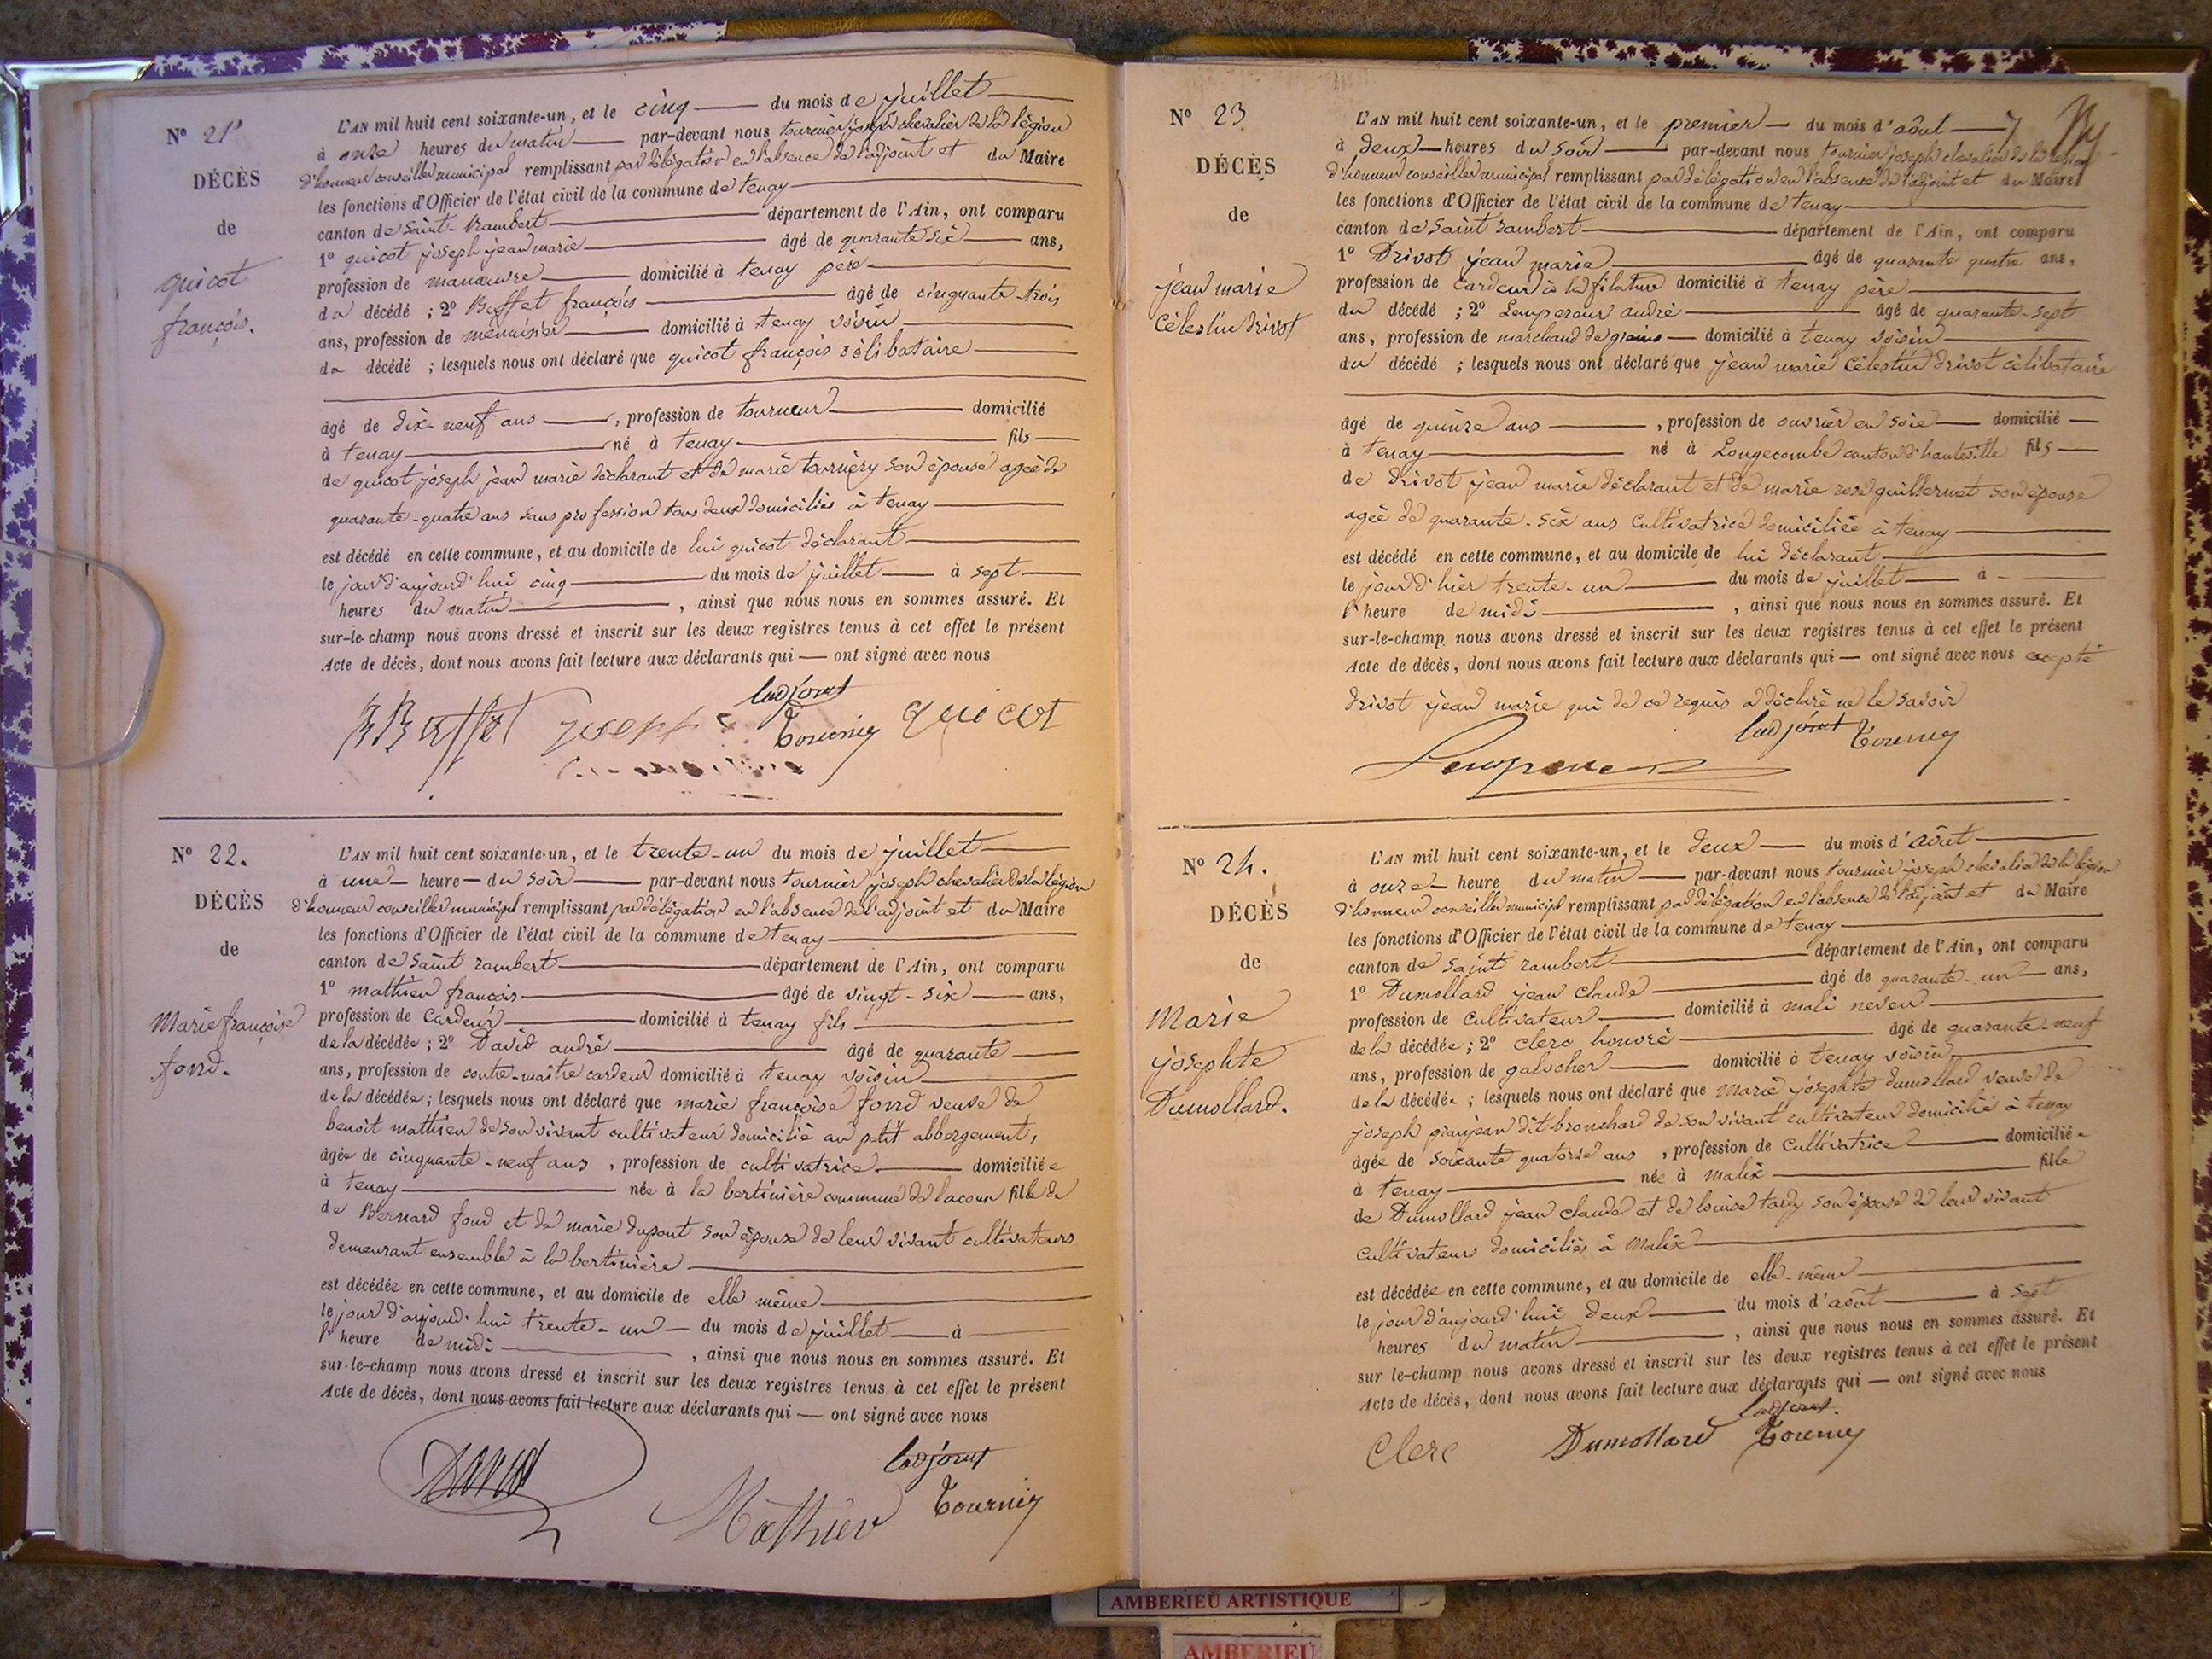 N° 21
DÉCÈS
de
quicot
françois.
L'AN mil huit cent soixante-un, et le cinq du mois de juillet
à onze heures du matin par-devant nous tournier joseph chevalier de la légion
d'honneur conseiller municipal remplissant par délégation en l'absence de l'adjoint et du Maire
les fonctions d'Officier de l'état civil de la commune de tenay
canton de Saint-Rambert département de l'Ain, ont comparu
1° quicot joseph jean marie âgé de quarante six ans,
profession de manœuvre domicilié à tenay père
du décédé ; 2° Buffet françois âgé de cinquante-trois
ans, profession de menuisier domicilié à tenay voisin
du décédé ; lesquels nous ont déclaré que quicot françois célibataire
âgé de dix-neuf ans , profession de tourneur domicilié
à tenay né à tenay fils
de quicot joseph jean marie déclarant et de marie tournery son épouse agée de
quarante-quatre ans sans profession tous deux domiciliés à tenay
est décédé en cette commune, et au domicile de lui quicot déclarant
le jour d'aujourd'hui cinq du mois de juillet à sept
heures du matin , ainsi que nous nous en sommes assuré. Et
sur-le-champ nous avons dressé et inscrit sur les deux registres tenus à cet effet le présent
Acte de décès, dont nous avons fait lecture aux déclarants qui — ont signé avec nous
Buffet joseph ladjoint Tournier quicot
N° 22.
DÉCÈS
de
Marie françoise
fond.
L'AN mil huit cent soixante-un, et le trente-un du mois de juillet
à une heure du soir par-devant nous tournier joseph chevalier de la légion
d'honneur conseiller municipal remplissant par délégation en l'absence de l'adjoint et du Maire
les fonctions d'Officier de l'état civil de la commune de tenay
canton de Saint rambert département de l'Ain, ont comparu
1° mathieu françois âgé de vingt-six ans,
profession de Cardeur domicilié à tenay fils
de la décédée ; 2° David andré âgé de quarante
ans, profession de contre-maître cardeur domicilié à tenay voisin
de la décédée ; lesquels nous ont déclaré que marie françoise fond veuve de
benoit mathieu de son vivant cultivateur domicilié au petit abbergement,
âgée de cinquante-neuf ans , profession de cultivatrice domiciliée
à tenay née à la bertinière commune de lacoux fille de
de Bernard fond et de marie dupont son épouse de leur vivant cultivateurs
demeurant ensemble à la bertinière
est décédée en cette commune, et au domicile de elle même
le jour d'aujourd'hui trente-un du mois de juillet à
l'heure de midi , ainsi que nous nous en sommes assuré. Et
sur-le-champ nous avons dressé et inscrit sur les deux registres tenus à cet effet le présent
Acte de décès, dont nous avons fait lecture aux déclarants qui — ont signé avec nous
David Mathieu ladjoint Tournier
N° 23
DÉCÈS
de
jean marie
Célestin drivot
L'AN mil huit cent soixante-un, et le premier du mois d'août
à deux heures du soir par-devant nous tournier joseph chevalier de la légion
d'honneur conseiller municipal remplissant par délégation en l'absence de l'adjoint et du Maire
les fonctions d'Officier de l'état civil de la commune de tenay
canton de Saint rambert département de l'Ain, ont comparu
1° Drivot jean marie âgé de quarante quatre ans,
profession de Cardeur à la filature domicilié à tenay père
du décédé ; 2° Lempereur andré âgé de quarante-sept
ans, profession de marchand de grains domicilié à tenay voisin
du décédé ; lesquels nous ont déclaré que jean marie Célestin drivot célibataire
âgé de quinze ans , profession de ouvrier en soie domicilié
à tenay né à Longecombe canton d'hauteville fils
de drivot jean marie déclarant et de marie rose guillermet son épouse
agée de quarante-six ans Cultivatrice domiciliée à tenay
est décédé en cette commune, et au domicile de lui déclarant
le jour d'hier trente-un du mois de juillet à
l'heure de midi , ainsi que nous nous en sommes assuré. Et
sur-le-champ nous avons dressé et inscrit sur les deux registres tenus à cet effet le présent
Acte de décès, dont nous avons fait lecture aux déclarants qui — ont signé avec nous excepté
drivot jean marie qui de ce requis a déclaré ne le savoir
Lempereur ladjoint Tournier
N° 24.
DÉCÈS
de
Marie
josephte
Dumollard.
L'AN mil huit cent soixante-un, et le deux du mois d'août
à onze heure du matin par-devant nous tournier joseph chevalier de la légion
d'honneur conseiller municipal remplissant par délégation en l'absence de l'adjoint et du Maire
les fonctions d'Officier de l'état civil de la commune de tenay
canton de saint rambert département de l'Ain, ont comparu
1° Dumollard jean claude âgé de quarante-un ans,
profession de cultivateur domicilié à malix neveu
de la décédée ; 2° clerc honoré âgé de quarante-neuf
ans, profession de galocher domicilié à tenay voisin
de la décédée ; lesquels nous ont déclaré que marie josephte dumollard veuve de
joseph granjean dit bronchard de son vivant cultivateur domicilié à tenay
âgée de soixante quatorze ans , profession de Cultivatrice domiciliée
à tenay née à malix fille
de Dumollard jean claude et de louise tardy son épouse de leur vivant
cultivateurs domiciliés à Malix
est décédée en cette commune, et au domicile de elle-même
le jour d'aujourd'hui deux du mois d'août à sept
heures du matin , ainsi que nous nous en sommes assuré. Et
sur le-champ nous avons dressé et inscrit sur les deux registres tenus à cet effet le présent
Acte de décès, dont nous avons fait lecture aux déclarants qui — ont signé avec nous
Clerc Dumollard ladjoint Tournier
AMBERIEU ARTISTIQUE
AMBERIEU